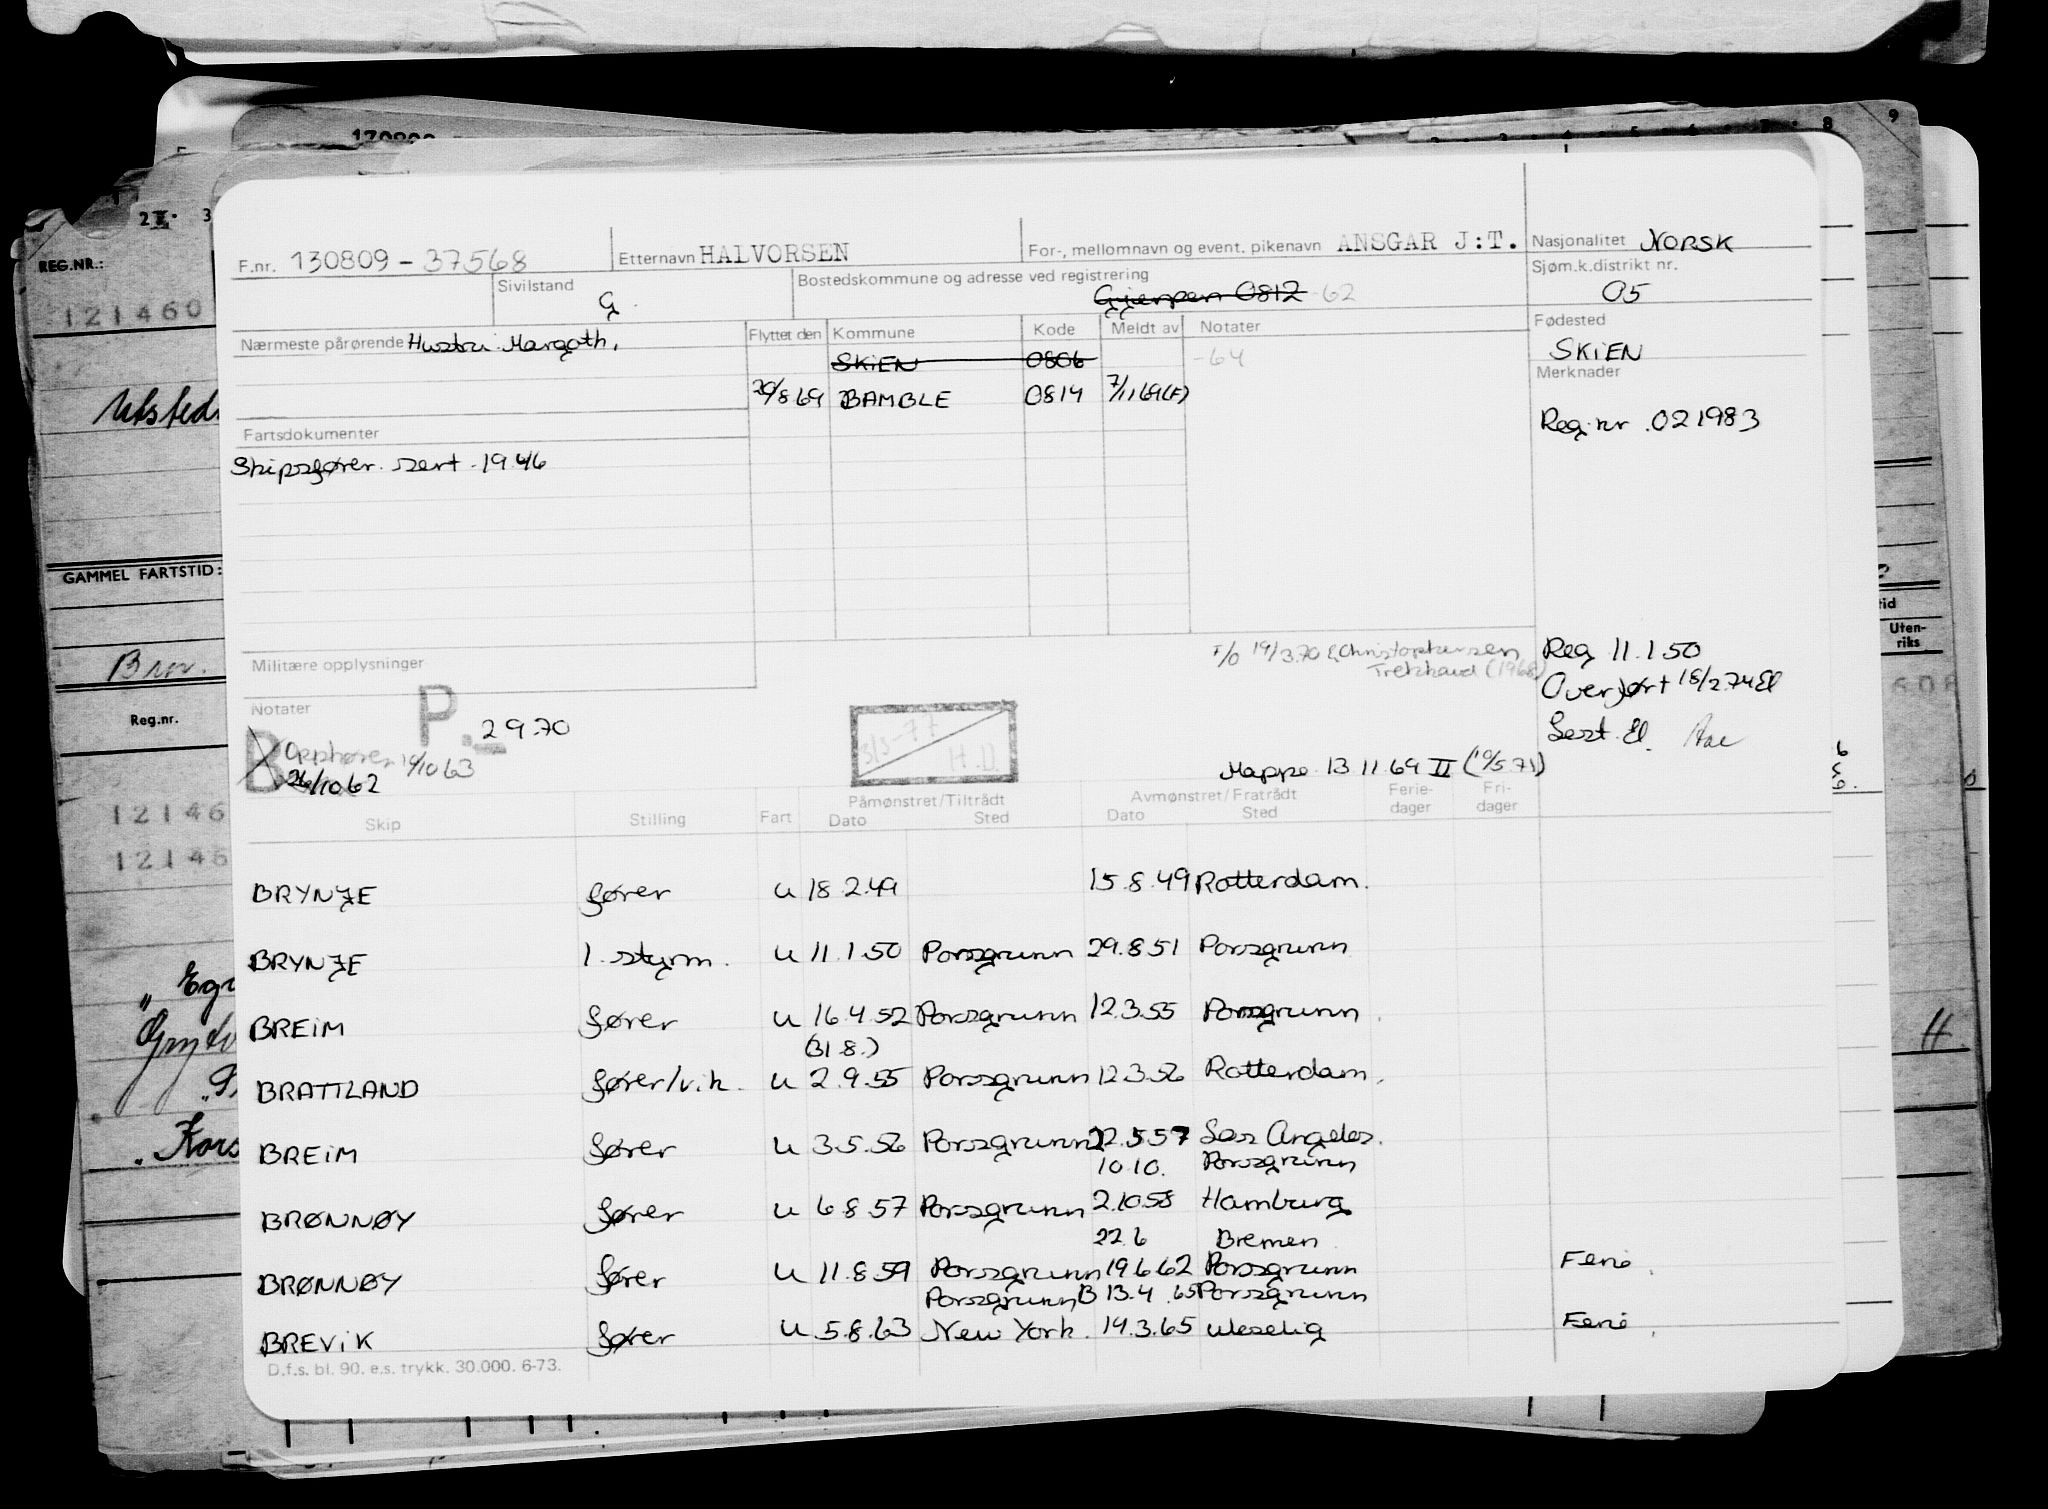 130809
2 3
3 4 5 6 7 8 9
REG.NR.:
121460
GAMMEL FARTSTID:
Reg.nr.
12146
12146
tid
Uten-
riks
H
F.nr. 130809-37568 Etternavn HALVORSEN For-, mellomnavn og event. pikenavn ANSGAR J:T. Nasjonalitet NORSK
Sivilstand G. Bostedskommune og adresse ved registrering Gjerpen 0812 -62 Sjøm.k.distrikt nr. 05
Nærmeste pårørende Hustru: Margoth, Flyttet den Kommune Kode Meldt av Notater Fødested
SKIEN 0806 -64 SKIEN
20/8 69 BAMBLE 0814 7/11 69(F) Merknader
Reg.nr. 021983
Fartsdokumenter
Skipsfører. sert. 1946
Militære opplysninger F/O 19/3.70 Christophersen Reg 11.1.50
Tretthaud (1968) Overført 18/2.74 El
Notater P. 2.9.70 Sert. El.
B Opphører 19/10 63 3/3-77 H.D.
26/10 62 Mappe 13.11.69 II (10/5.71)
Skip Stilling Fart Påmønstret/Tiltrådt Avmønstret/Fratrådt Ferie- Fri-
Dato Sted Dato Sted dager dager
BRYNJE fører u 18.2.49 15.8.49 Rotterdam.
BRYNJE 1. styrm. u 11.1.50 Porsgrunn 29.8.51 Porsgrunn
BREIM fører u 16.4.52 Porsgrunn 12.3.55 Porsgrunn.
(31.8.)
BRATTLAND fører/v.k. u 2.9.55 Porsgrunn 12.3.56 Rotterdam.
BREIM fører u 3.5.56 Porsgrunn 22.5.57 Los Angeles.
10.10. Porsgrunn
BRØNNØY fører u 6.8.57 Porsgrunn 2.10.58 Hamburg
22.6 Bremen
BRØNNØY fører u 11.8.59 Porsgrunn 19.6.62 Porsgrunn Ferie.
Porsgrunn B 13.4.65 Porsgrunn
BREVIK fører u 5.8.63 New York. 14.3.65 Weselig Ferie.
D.f.s. bl. 90. e.s. trykk. 30.000. 6-73.